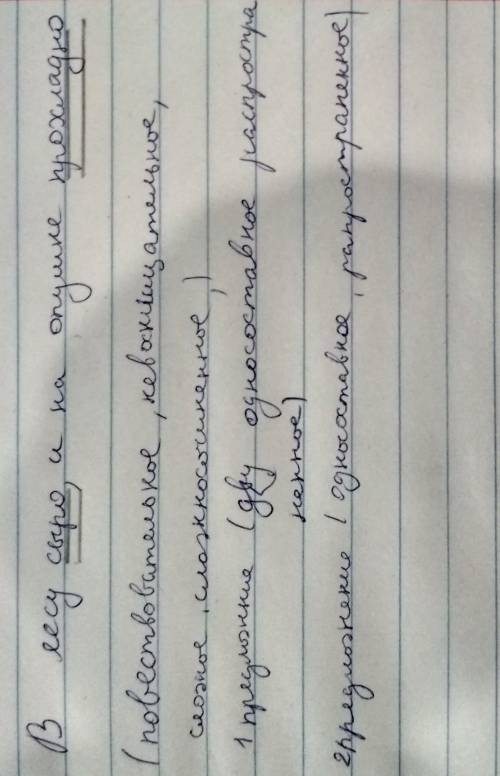 В лесу сыро, и на опушке прохладно
(повествовательное, невосклицательное,
сложное, сложносочиненное,)
1 предложние (дву односоставное распростра
ненное)
2 предложение (односоставное, рапространенное)